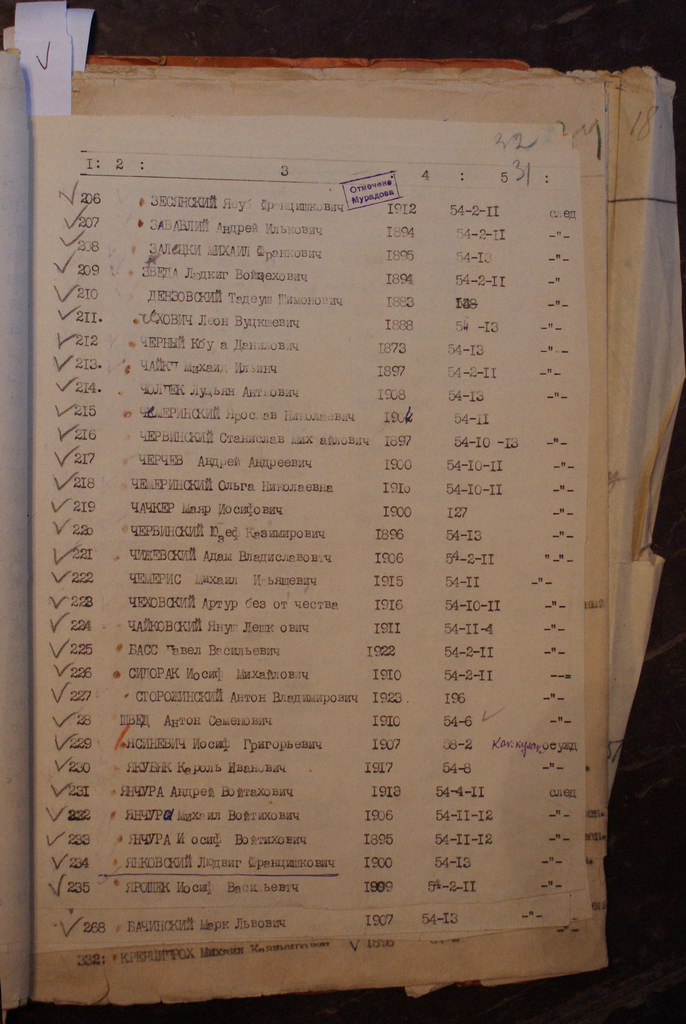 32
18
31
I: 2 : 3 4 : 5 :
Отмочено Мурадова
206 ЗЕСЯНСКИЙ Якуб Францишкович 1912 54-2-II след
207 ЗАБАВЛИЙ Андрей Илькович 1894 54-2-II -"-
208 ЗАЛЕЦКИ МИХАИЛ Франкович 1895 54-13 -"-
209 ЗВЕДА Людкиг Войцехович 1894 54-2-II -"-
210 ДЕНЗОВСКИЙ Тадеуш Шимонович 1883 -"-
211. Леон Вуцкшевич 1888 54 -13 -"-
212 ЧЕРНЫЙ Кбу а Данилович 1873 54-13 -"-
213. Михаил Ильинч 1897 54-2-II -"-
214. ЧОЛПЕК Лудьян Антнович 1908 54-13 -"-
215 ЧЕМЕРИНСКИЙ Ярослав Николаевич 54-II
216 ЧЕРВИНСКИЙ Станислав Мих айлович 1897 54-10 -13 -"-
217 ЧЕРЧЕВ Андрей Андреевич 1900 54-10-II -"-
218 ЧЕМЕРИНСКИЙ Ольга Николаевна 1910 54-10-II -"-
219 ЧАЧКЕР Маяр Иосифович 1900 127 -"-
220 ЧЕРВИНСКИЙ Юзеф Казимирович 1896 54-13 -"-
221 ЧИЖЕВСКИЙ Адам Владиславовтч 1906 54-2-II "-"-
222 ЧЕМЕРИС Михаил Ильяшевич 1915 54-II -"-
223 ЧЕХОВСКИЙ Артур без от чества 1916 54-10-II -"-
224 ЧАЙКОВСКИЙ Януш Лешк ович 1911 54-II-4 -"-
225 БАСС Павел Васильевич 1922 54-2-II -"-
226 СИДОРАК Иосиф Михайлович 1910 54-2-II --=
227 СТОРОЖИНСКИЙ Антон Владимирович 1923 196 -"-
28 ШВЕД Антон Семенович 1910 54-6 -"-
229 ЯСИНЕВИЧ Иосиф Григорьевич 1907 58-2 осужд
230 ЯКУБЯК Кароль Иванович 1917 54-8 -"-
231 ЯНЧУРА Андрей Войтахович 1913 54-4-II след
232 ЯНЧУРА Михаил Войтихович 1906 54-II-12 -"-
233 ЯНЧУРА И осиф Войтихович 1895 54-II-12 -"-
234 ЯНКОВСКИЙ Людвиг Францишкович 1900 54-13 -"-
235 ЯРОШЕК Иосиф Васильевтч 1909 54-2-II -"-
268 БАЧИНСКИЙ Марк Львович 1907 54-13 -"-
332: Михаил